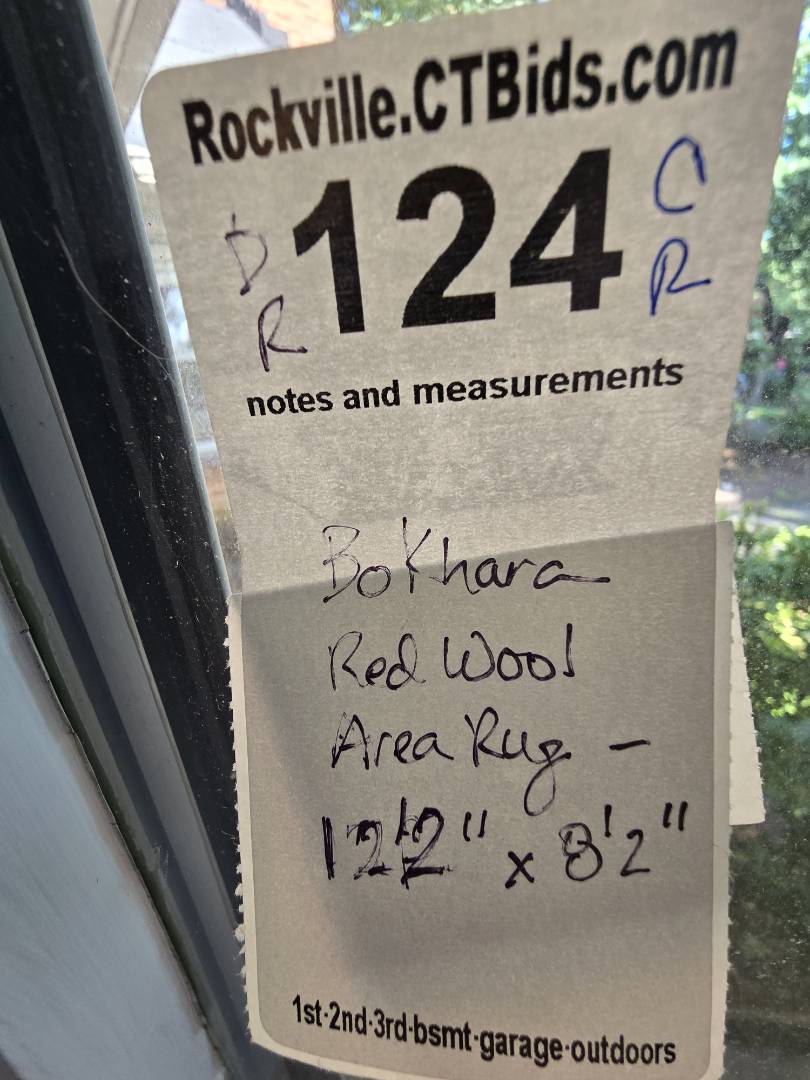 Rockville.CTBids.com
D 124 C
R R
notes and measurements
Bokhara
Red Wool
Area Rug -
12'2" x 8'2"
1st·2nd·3rd·bsmt·garage·outdoors